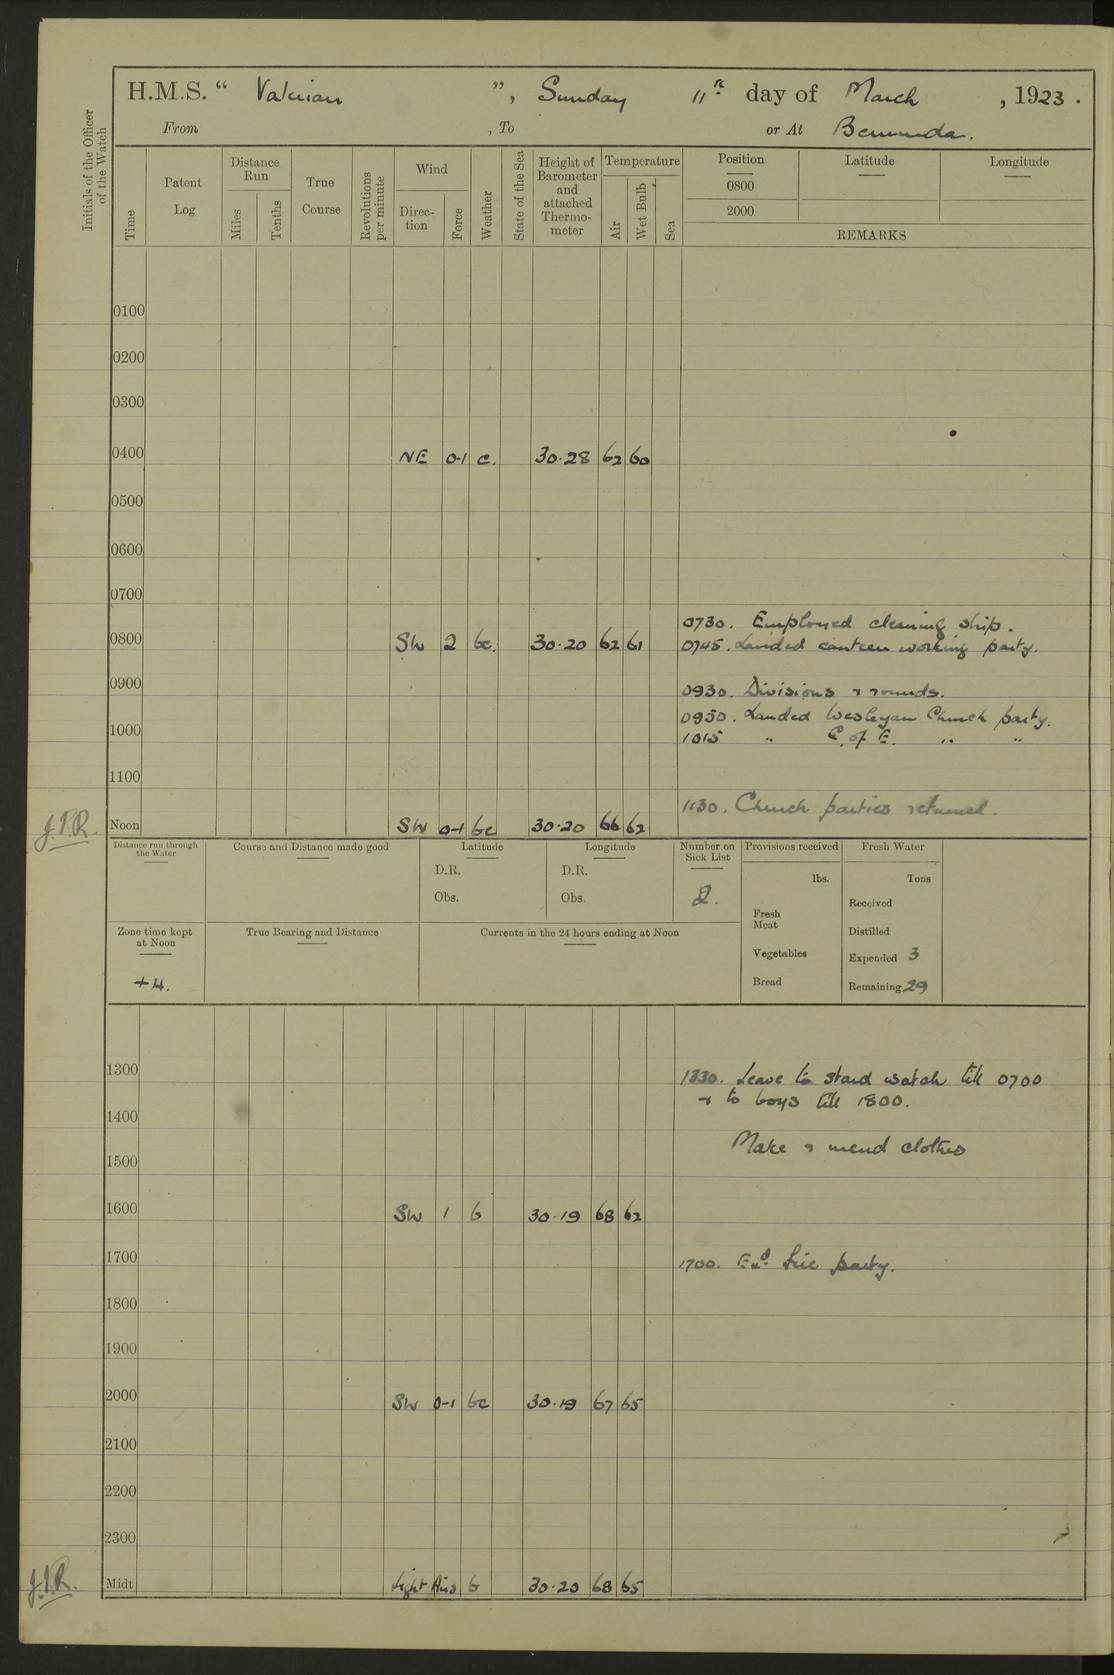 H.M.S. “ Valerian ”, Sunday 11th day of March , 1923 .
From , To or At Bermuda.
Initials of the Officer of the Watch
Time
Patent Log
Distance Run
Miles
Tenths
True Course
Revolutions per minute
Wind
Direc-tion
Force
Weather
State of the Sea
Height of Barometer and attached Thermo-meter
Temperature
Air
Wet Bulb
Sea
Position
0800
2000
Latitude
Longitude
REMARKS
0100
0200
0300
0400 NE 0-1 c. 30.28 62 60
0500
0600
0700
0730. Employed cleaning ship.
0800 SW 2 bc. 30.20 62 61
0745. Landed canteen working party.
0900
0930. Divisions & rounds.
0950. Landed Wesleyan Church party.
1000
1015 " C. of E. " "
1100
1130. Church parties returned.
J.I.R. Noon SW 0-1 bc 30.20 66 62
Distance run through the Water
Course and Distance made good
Latitude
D.R.
Obs.
Longitude
D.R.
Obs.
Number on Sick List
2.
Provisions received
lbs.
Fresh Meat
Vegetables
Bread
Fresh Water
Tons
Received
Distilled
Expended 3
Remaining 29
Zone time kept at Noon
+4.
True Bearing and Distance
Currents in the 24 hours ending at Noon
1300
1330. Leave to stard watch till 0700
& to boys till 1800.
1400
Make & mend clothes
1500
1600 SW 1 b 30.19 68 62
1700
1700. Exd fire party.
1800
1900
2000 SW 0-1 bc 30.19 67 65
2100
2200
2300
J.I.R. Midt Light Airs b 30.20 68 65